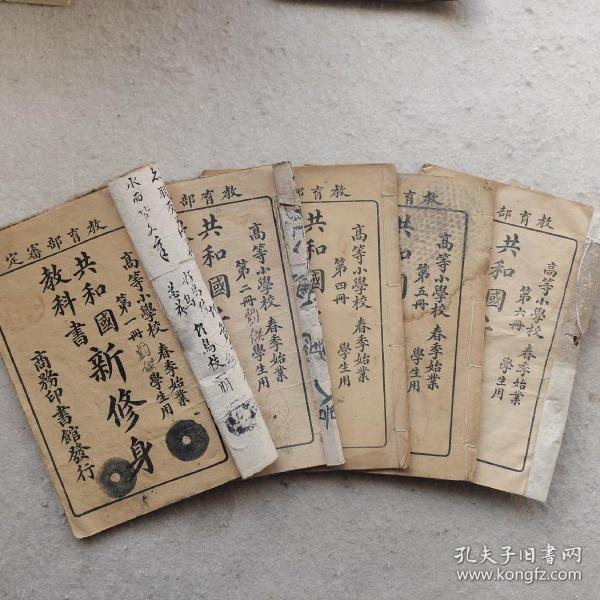 定審部育教
高等小學校 春季始業
第一册 學生用
共和國
教科書
新修身
商務印書館發行
教育部
高等小學校 春季始業
第二册 學生用
共和國
教育部
高等小學校 春季始業
第四册 學生用
共和國
教育部
高等小學校 春季始業
第五册 學生用
共和國
教育部
高等小學校 春季始業
第六册 學生用
共和國
孔夫子旧书网
www.kongfz.com